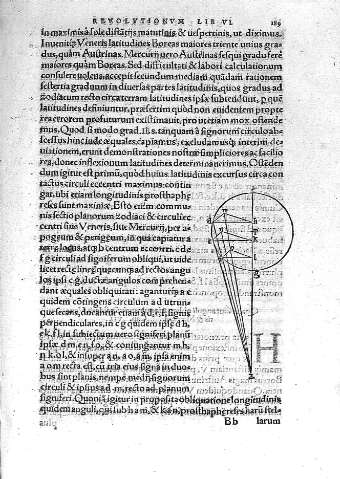 REVOLVTIONVM LIB VI. 189
in maximis à sole distatijs matutinis & uespertinis, ut diximus.
Inuenitque Veneris latitudines Boreas maiores triente unius gra-
dus, quàm Austrinas. Mercurij uero Austrinas sesqui gradu ferè
maiores quàm Boreas. Sed difficultati & labori calculationum
consulere uolens, accepit secundum mediam quandam rationem
sestertia graduum in diuersas partes latitudinis, quos gradus ad
latitudines definiuntur, præsertim quòd non euidentem propte
rea errorem profuturum existimauit, pro ut etiam mox ostende
mus. Quod si modo grad.
cessus hinc inde æquales, capiamus, excludamusque interim de-
uiationem, erunt demonstrationes nostræ simpliciores ac facilio
res, donec inflexionum latitudines determinauerimus. Ostēden
dum igitur est primū, quòd huius latitudinis excursus circa con
tactus circuli eccentri maximus contin
gat, ubi etiam longitudinis prosthaphæ
reses sunt maximæ. Esto enim commu-
nis sectio planorum zodiaci & circuli ec
centri siue Veneris, siue Mercurij, per a-
pogæum & perigæum, in qua capiatur a
terræ locus, atque b centrum eccentri, c d e
f g circuli ad signiferum obliqui, ut uide
licet rectæ lineæ quæcunque ad rectos angu
los ipsi c g, ductæ angulos comprehen-
dant æquales obliquitati: agantur a e
quidem cōtingens circulum, a d utcun-
que secans, ducantur etiam à d, e, f, signis
perpendiculares, in c g quidem ipsæ d h,
e k, f l, in subiectum uero signiferi planū
ipsæ d m, e n, f o, & coniungantur m h,
n k, o l, & insuper a n, a o, a m, ipsa enim a
a o m recta est, cū tria eius signa in duo-
bus sint planis, nempe medij signorum
circuli, & ipsius a d m, recto ad planum
signiferi. Quoniā igitur in proposita obliquatione longitudinis
quidem anguli, qui sub h a m, & k a n, prosthaphæreses harū stel-
Bb larum